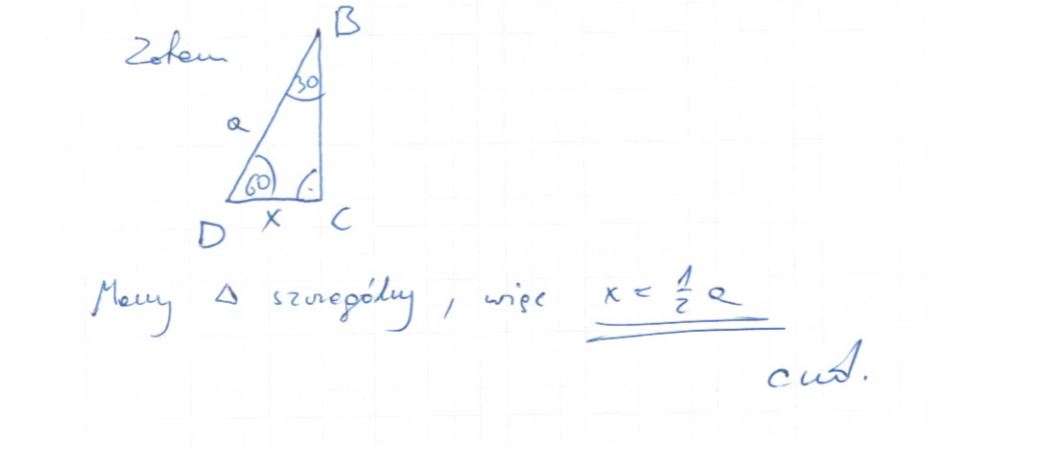 B
Zatem
30
a
60
x C
D
Mamy Δ szczególny, więc x = 1/2 a
cnd.